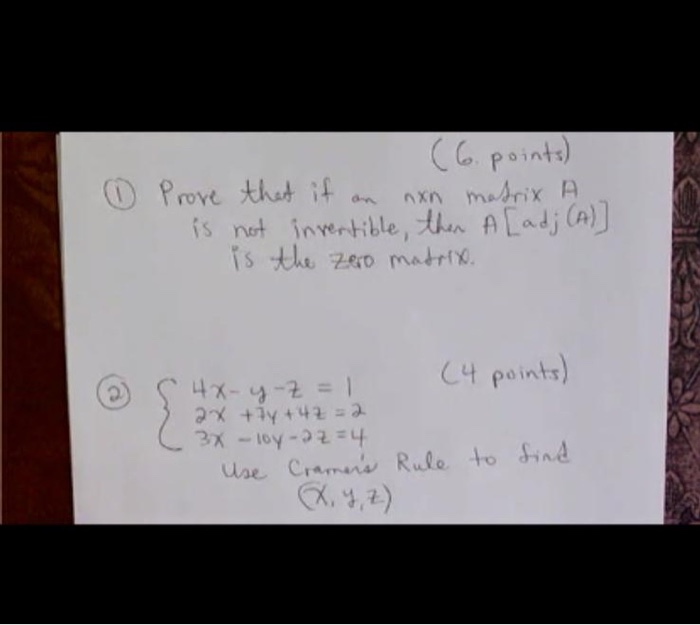 (6. points)
① Prove that if an nxn matrix A
is not invertible, then A[adj(A)]
is the zero matrix.
② { 4x - y - z = 1 (4 points)
2x + 7y + 4z = 2
3x - 10y - 2z = 4
Use Cramer's Rule to find
(x, y, z)